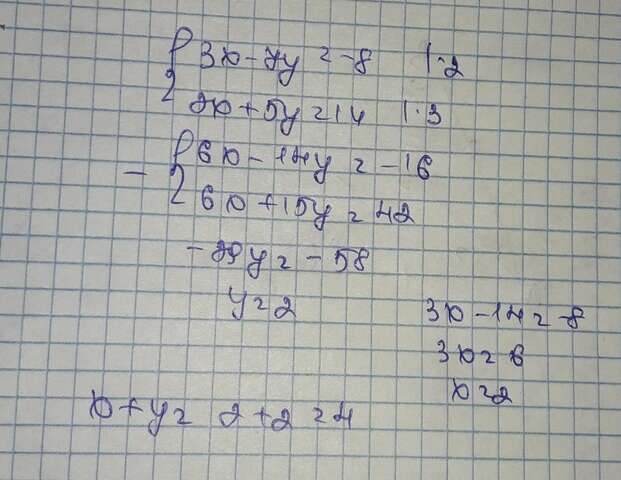 { 3x - 7y = -8 | · 2
2x + 5y = 14 | · 3
- { 6x - 14y = -16
6x + 15y = 42
-29y = -58
y = 2
3x - 14 = -8
3x = 6
x = 2
x + y = 2 + 2 = 4